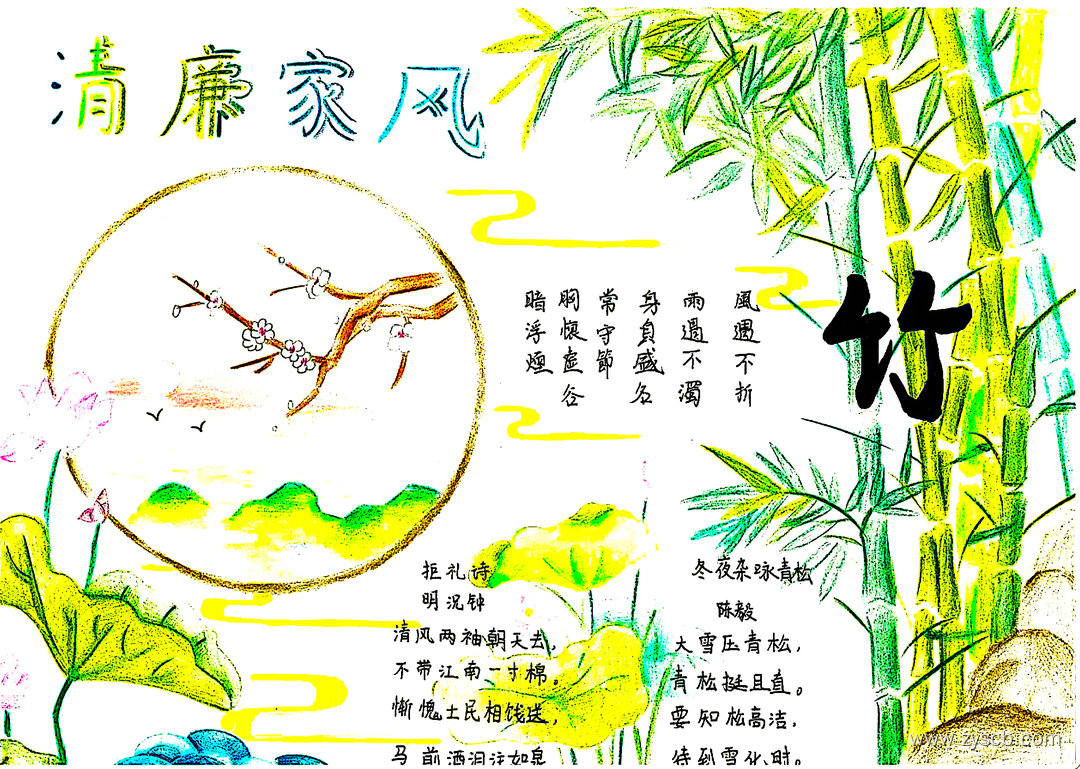 清廉家风
竹
風遇不折
雨遇不濁
身負盛名
常守節
胸懷虛谷
暗浮煙
拒礼诗
明 况钟
清风两袖朝天去,
不带江南一寸棉。
惭愧士民相饯送,
马前洒泪注如泉
冬夜杂咏青松
陈毅
大雪压青松,
青松挺且直。
要知松高洁,
待到雪化时。
www.zyscb.com